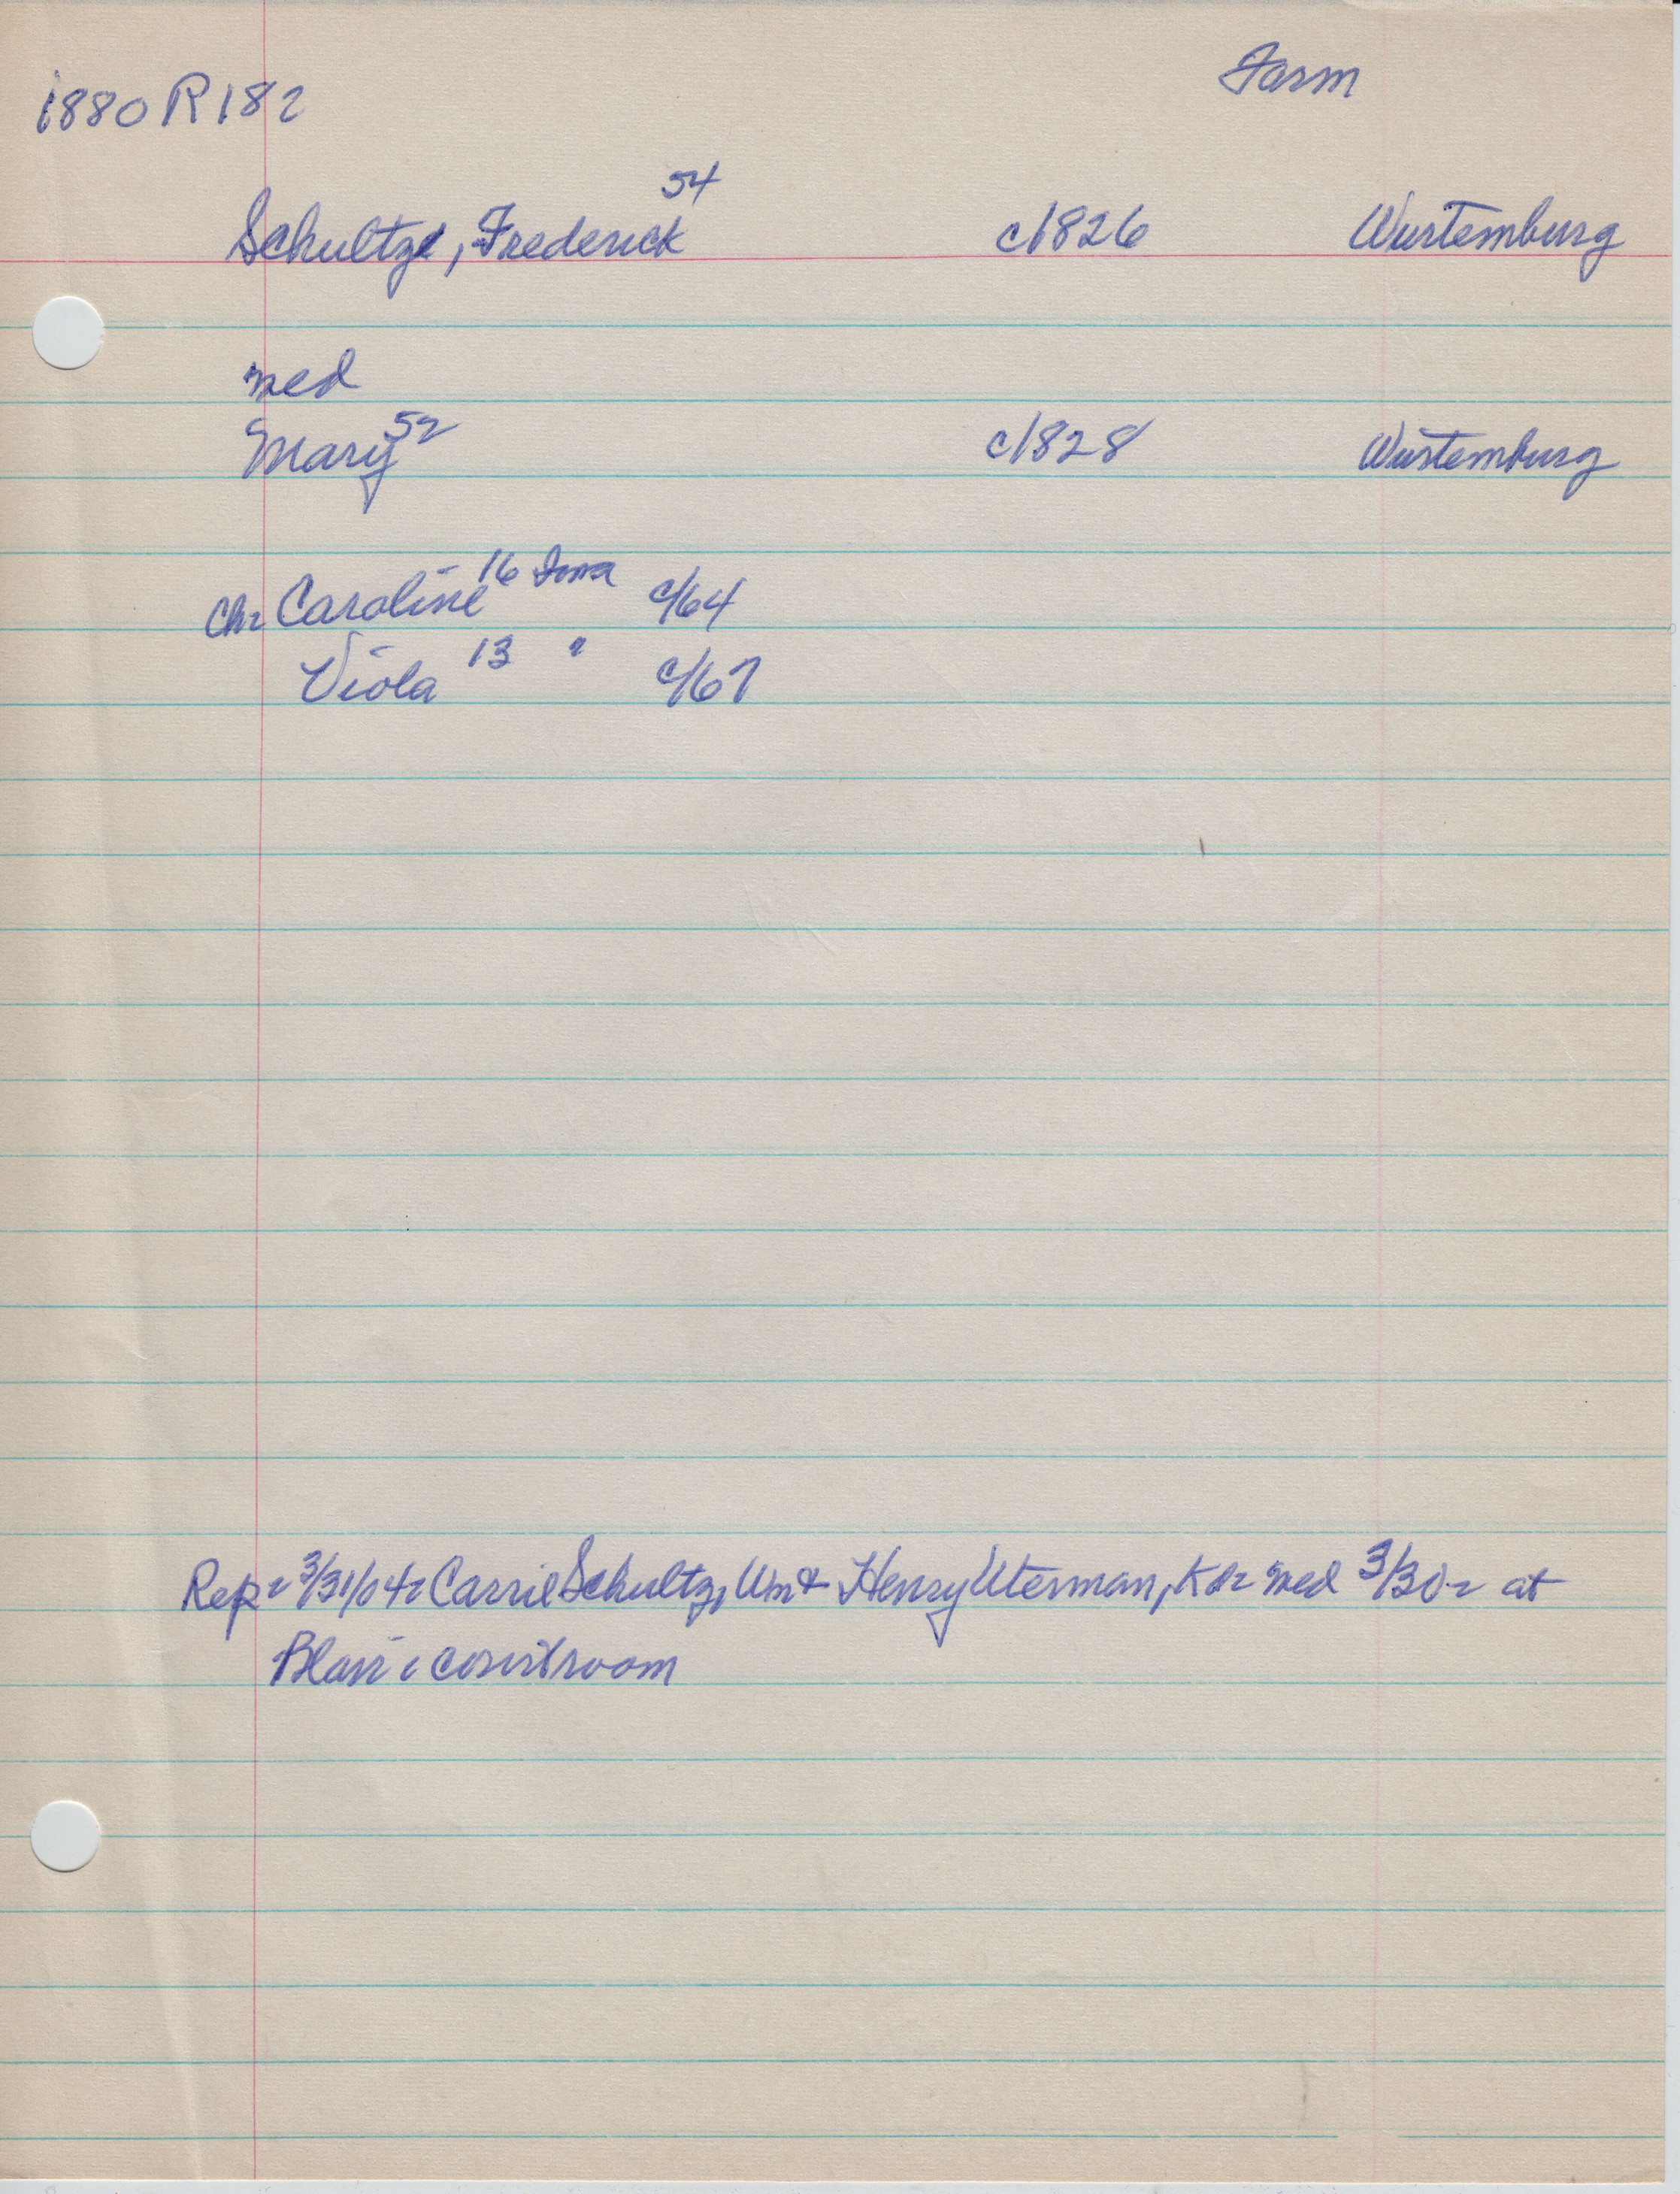 1880 R 182
Farm
54
Schultze, Frederick c1826 Wurtemburg
med
Mary 52 c1828 Wurtemburg
Ch- Caroline 16 Iowa c/64
Viola 13 " c/67
Rep- 3/31/04- Carrie Schultz, Wm & Henry Uterman, Kd- med 3/30- at
Blair courtroom